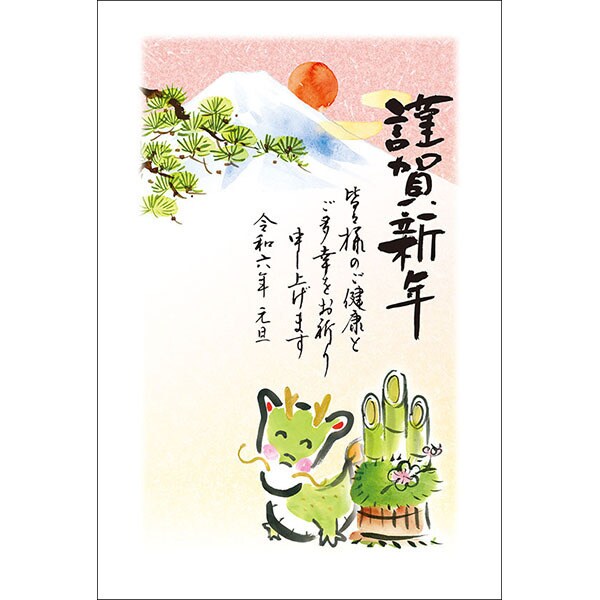 謹賀新年
皆々様のご健康と
ご多幸をお祈り
申し上げます
令和六年 元旦